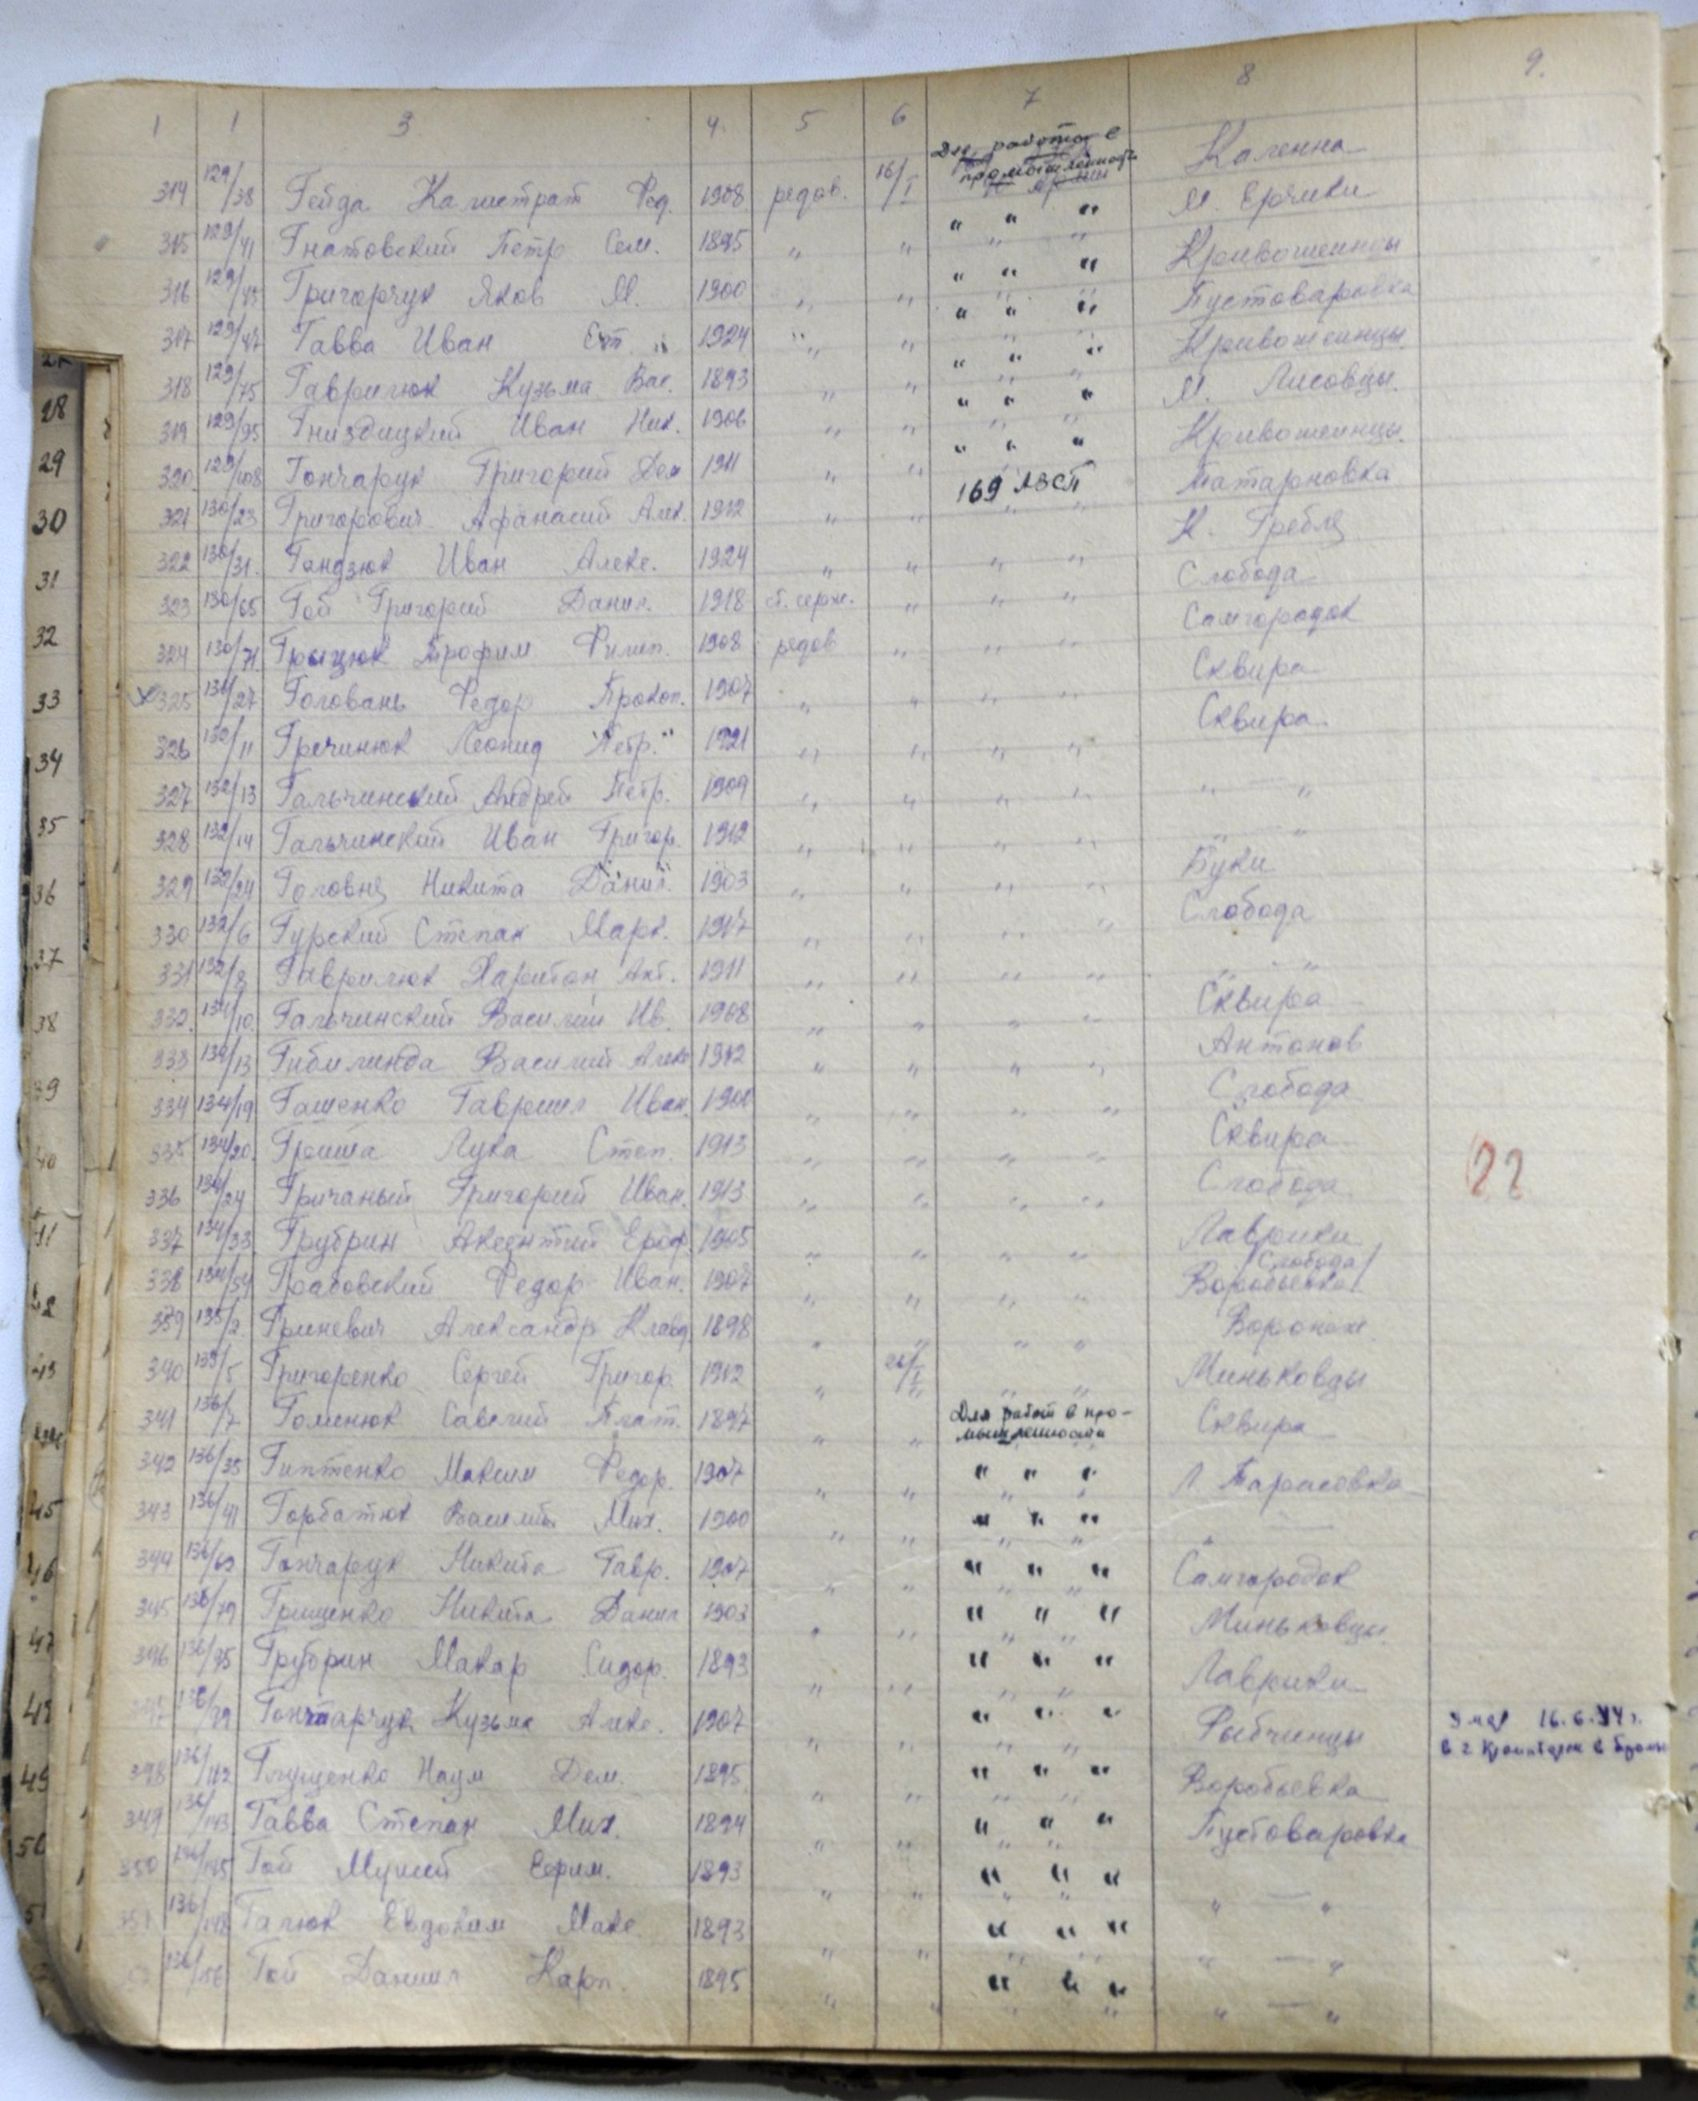 1 1 3 4. 5 6 7 8 9.
314 129/38 Гейда Калистрат Фед. 1908 рядов. 16/I Для работы в промышленность Каленна
315 129/41 Гнатовский Петр Сем. 1895 „ „ „ „ „ М. Ерчики
316 129/43 Григорчук Яков М. 1900 „ „ „ „ „ Кривошеинцы
317 129/47 Гавва Иван Ст. 1924 „ „ „ „ „ Пустоваровка
318 129/75 Гаврилюк Кузьма Вас. 1893 „ „ „ „ „ Кривошеинцы
319 129/95 Гниздицкий Иван Ник. 1906 „ „ „ „ „ М. Лисовцы.
320 129/108 Гончарук Григорий Дем 1911 „ „ „ „ „ Кривошеинцы.
321 130/23 Григорович Афанасий Алек. 1912 „ „ 169 АЗСП Татариновка
322 130/31. Гандзюк Иван Алекс. 1924 „ „ „ „ К. Гребля
323 130/65 Гой Григорий Данил. 1918 ст. серж. „ „ „ Слобода
324 130/71 Грыцюк Трофим Филип. 1908 рядов „ „ „ Самгородок
325 131/27 Головань Федор Прокоп. 1907 „ „ „ „ Сквира
326 132/11 Гречинюк Леонид Петр. 1921 „ „ „ „ Сквира
327 132/13 Гальчинский Андрей Петр. 1909 „ „ „ „ „ — „
328 132/14 Гальчинский Иван Григор. 1912 „ „ „ „ „ — „
329 132/24 Головня Никита Данил. 1903 „ „ „ „ Буки
330 132/6 Гурский Степан Марк. 1917 „ „ „ „ Слобода
331 132/8 Гаврилюк Харитон Ант. 1911 „ „ „ „ „ „
332. 134/10. Гальчинский Василий Ив. 1908 „ „ „ „ Сквира
333 134/13 Гибилинда Василий Алек 1912 „ „ „ „ Антонов
334 134/19 Гашенко Гавриил Иван. „ „ „ „ Слобода
335 134/20. Гроша Лука Степ. 1913 „ „ „ „ Сквира
336 134/24 Гричаный Григорий Иван. 1913 „ „ „ „ Слобода 22
337 134/33 Грубрин Акентий Ероф. 1905 „ „ „ „ Лаврики
338 134/54 Грабовский Федор Иван. 1907 „ „ „ „ Воробьевка /Слобода/
339 135/2. Гриневич Александр Клавд 1898 „ „ „ „ Воронеж
340 135/5 Григоренко Сергей Григор. 1912 „ 26/I „ „ Миньковцы
341 136/7 Гоменюк Савелий Плат. 1897 „ „ Для работ в про- мышленности Сквира
342 136/35 Гиптенко Максим Федор. 1907 „ „ „ „ „ Л. Тарасовка
343 136/41 Горбатюк Василий Мих. 1900 „ „ „ „ „ „ —
344 136/69 Гончарук Никита Гавр. 1907 „ „ „ „ „ Самгородок
345 136/79 Грищенко Никита Данил 1903 „ „ „ „ „ Миньковцы.
346 136/95 Грубрин Макар Сидор. 1893 „ „ „ „ „ Лаврики
136/99 Гончарук Кузьма Алекс. 1907 „ „ „ „ „ Рыбчинцы Умер 16.6.44 г.
348 136/112 Глущенко Наум Дем. 1895 „ „ „ „ „ Воробьевка
349 136/143 Гавва Степан Мих. 1894 „ „ „ „ „ Пустоваровка
350 136/145 Гой Мусий Ефим. 1893 „ „ „ „ „ „ — „
351 136/148 Галюк Евдоким Макс 1893 „ „ „ „ „ „ — „
136/156 Гой Даниил Карп. 1895 „ „ „ „ „ „ — „
28
29
30
31
32
33
34
35
36
37
38
39
40
45
46
47
49
50